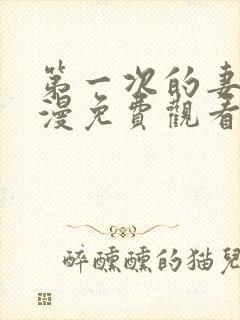 第一次的妻
漫免費觀看
醉醺醺的猫兒